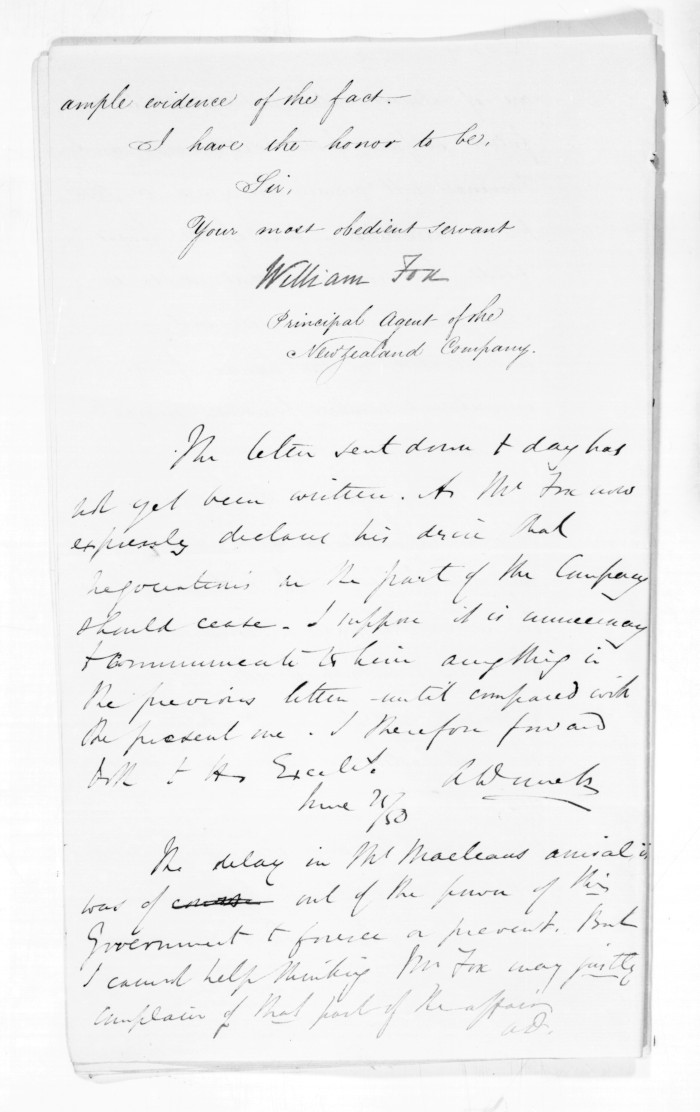 ample evidence of the fact.—
I have the honor to be,
Sir,
Your most obedient servant
William Fox
Principal Agent of the
New Zealand Company.
The letter sent down to day has
not yet been written. As Mr Fox now
expressly declares his desire that
negociations on the part of the Company
should cease - I suppose it is unnecessary
to communicate to him anything in
the previous letter until compared with
the present one. I therefore forward
both to His Excellcy.
June /50
The delay in Mr Macleans arrival
was of course out of the power of this
Government to foresee or prevent. But
I cannot help thinking Mr Fox may justly
complain of that part of the affair
AD.